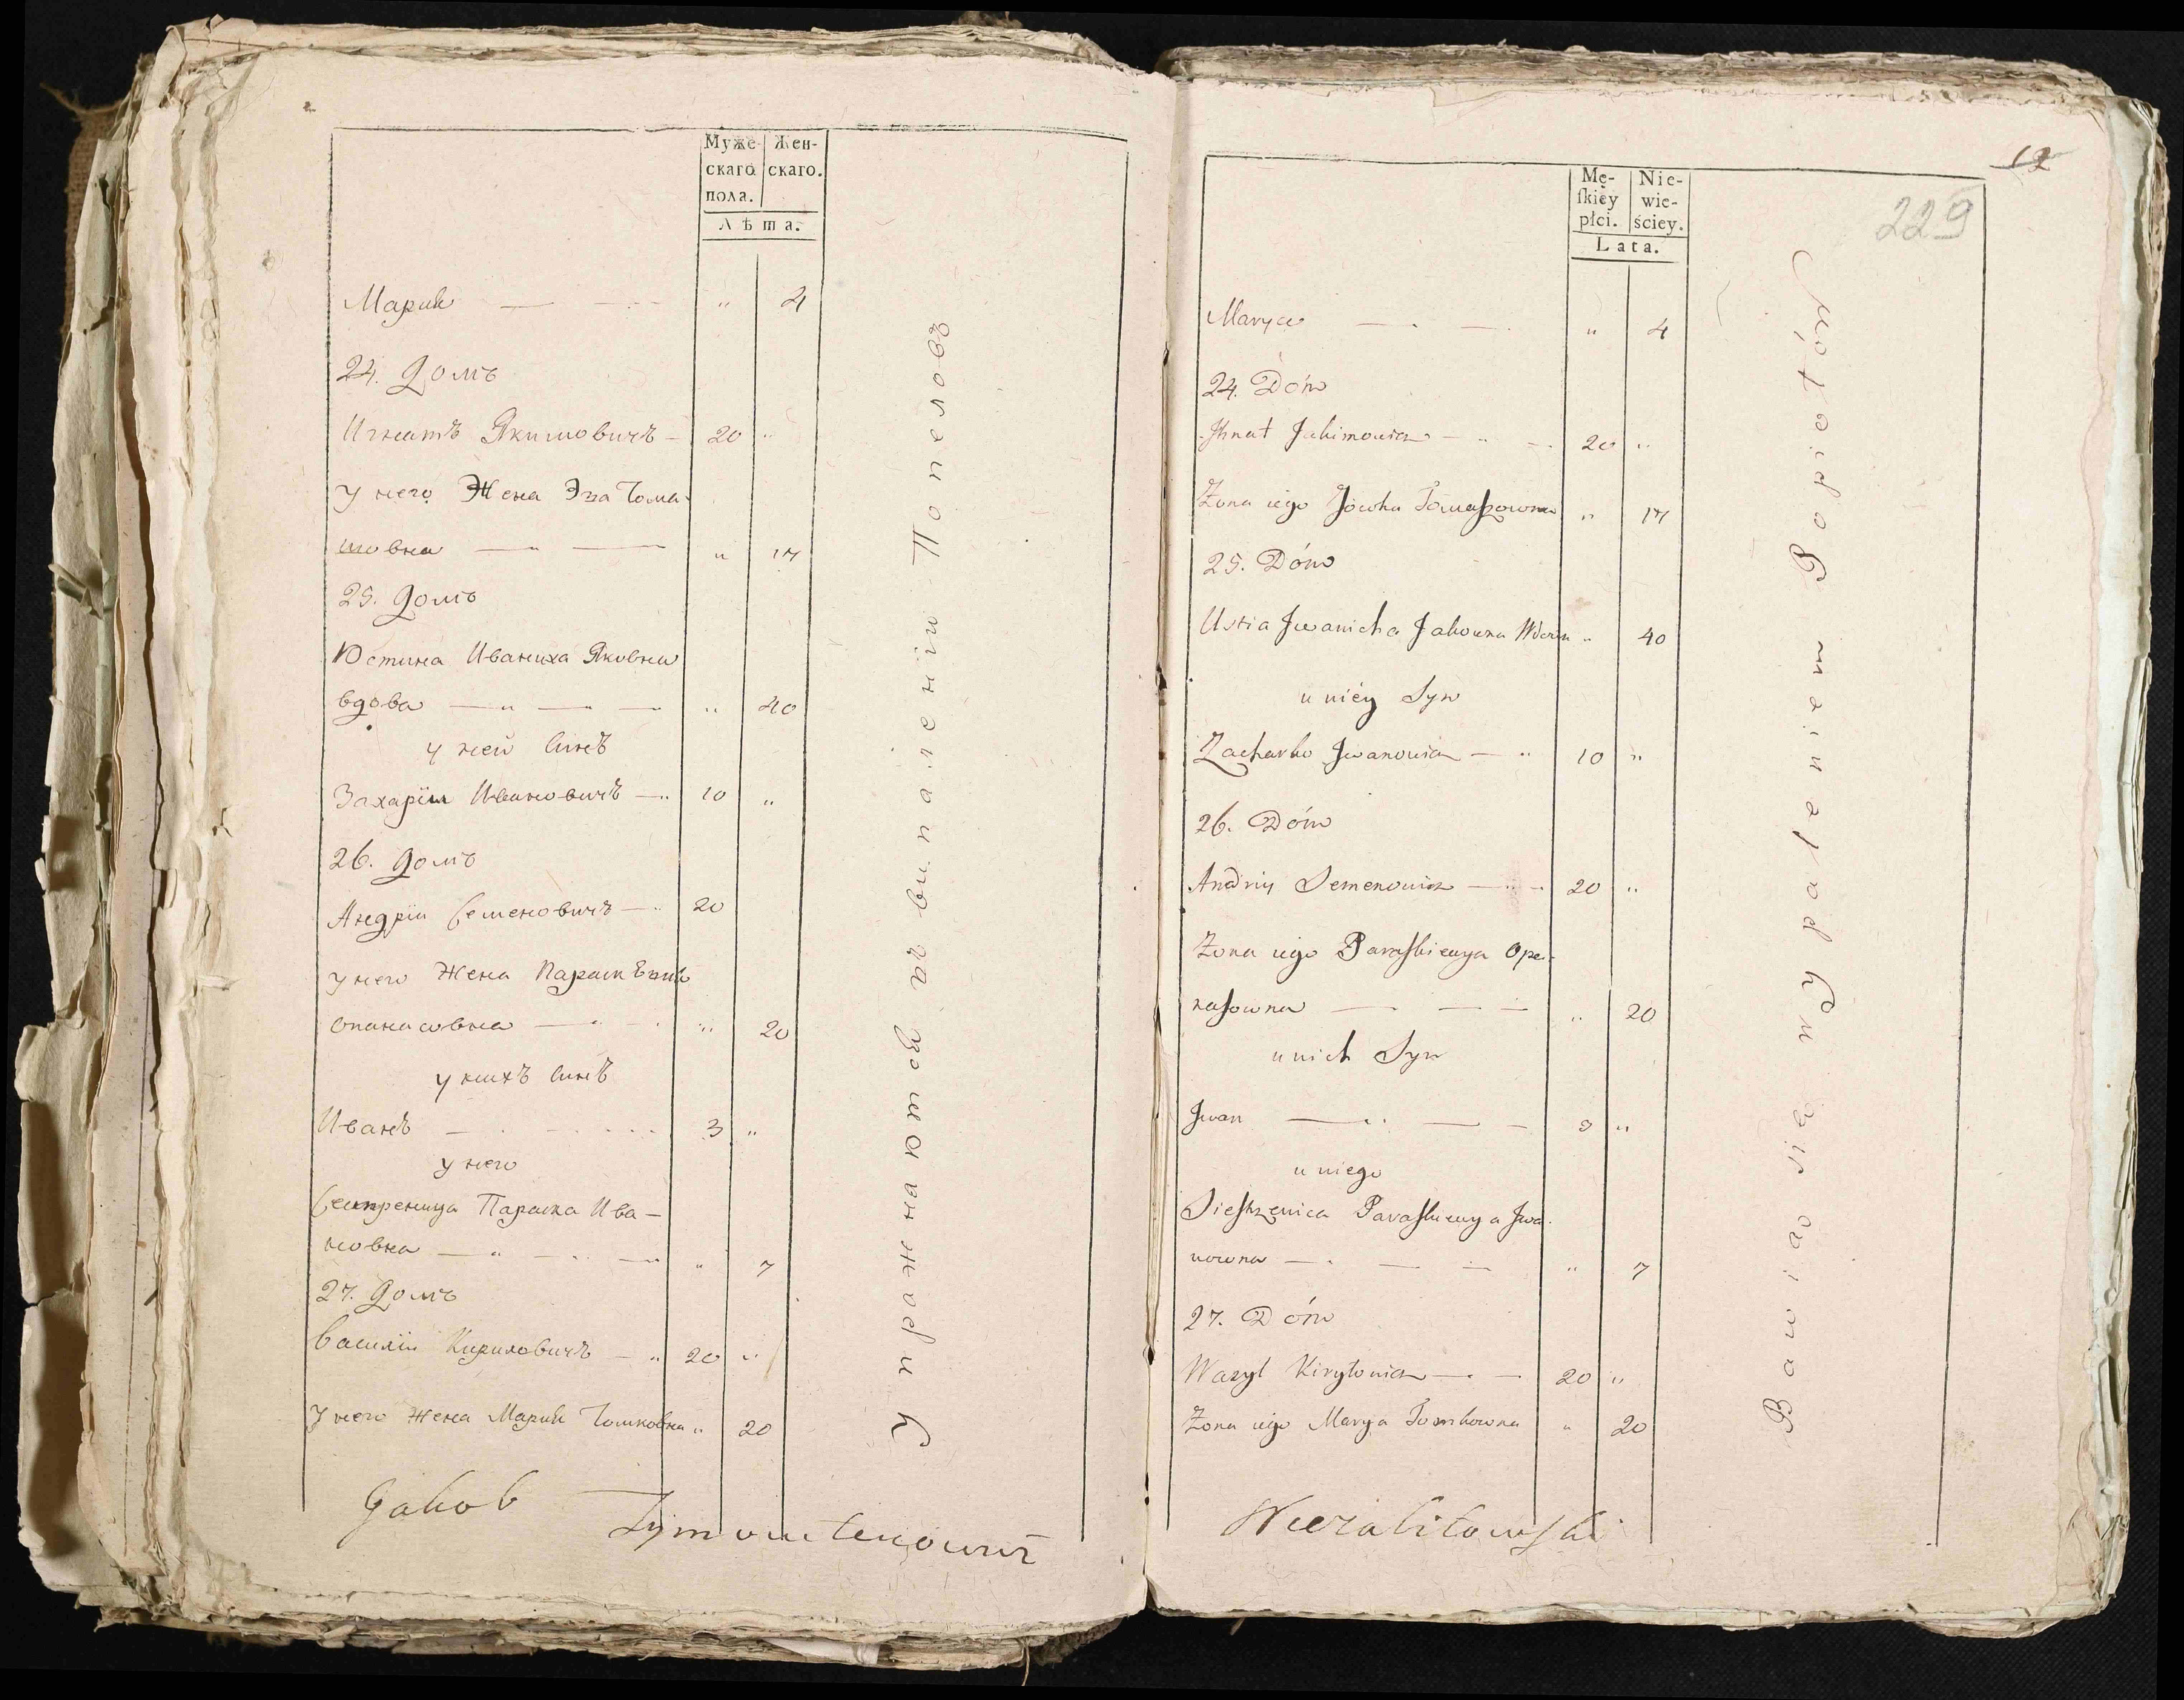 Муже- Жен-
скаго скаго.
пола.
Лѣта.
Мария — — " 4
24. Домъ
Игнатъ Якимовичъ — 20 "
У него Жена Эва Тома-
шовна — " — " 17
25. Домъ
Юстина Иваниха Яковна
вдова — " — " — " 40
у ней Синъ
Захарій Ивановичъ — " 10 "
26. Домъ
Андрій Семеновичъ — " 20
У него Жена Параскѣвия
Опанасовна — " 20
у нихъ Синъ
Иванъ — 3 "
у него
Сестреница Параска Ива-
новна — " — " 7
27. Домъ
Василій Кириловичъ — " 20 "
У него Жена Мария Томковна " 20
Упражнаютсѧ въ випаленіи Попеловъ
12
229
Mę- Nie-
ſkiéy wie-
płci. ściey.
Lata.
Marya — — " 4
24. Dóm
Ihnat Jakimowicz — " — 20 "
Żona iego Jówha Tomaszowna " 17
25. Dóm
Ustia Iwanicha Jakowna Wdowa " 40
u niéy Syn
Zacharko Iwanowicz — " 10 "
26. Dóm
Andriy Semenowicz — " 20 "
Żona iego Paraſkiewya Opa-
naſowna — — — " 20
u nich Syn
Iwan — " — 3 "
u niego
Sieſtrzenica Paraſkiewya Iwa-
nowna — — — " 7
27. Dóm
Wazyl Kiryłowicz — — 20 "
Żona iego Marya Tomkowna " 20
Bawią się wypaleniem Popiołów
Jakob